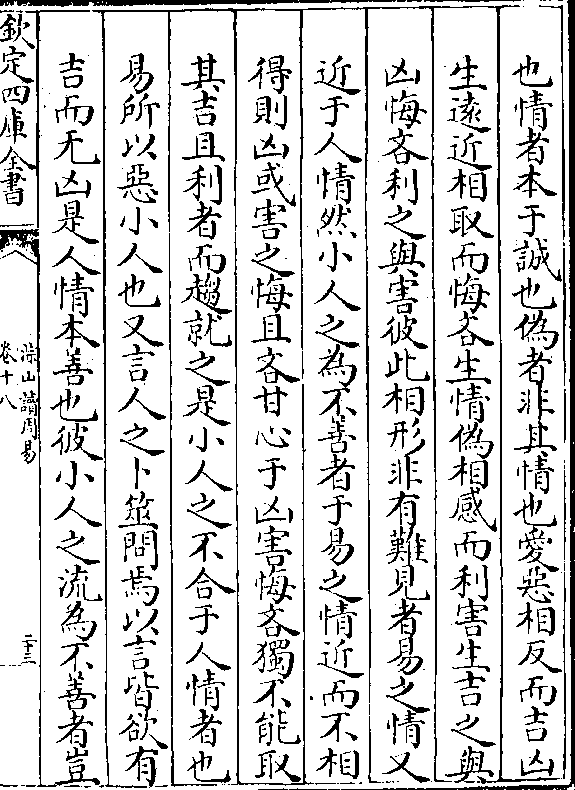 也情者本于誠也偽者非其情也愛惡相反而吉凶
生遠近相取而悔吝生情偽相感而利害生吉之與
凶悔吝利之與害彼此相形非有難見者易之情又
近于人情然小人之為不善者于易之情近而不相
得則凶或害之悔且吝甘心于凶害悔吝獨不能取
其吉且利者而趨就之是小人之不合于人情者也
易所以惡小人也又言人之卜筮問焉以言皆欲有
吉而无凶是人情本善也彼小人之流為不善者豈
欽定四庫全書
涂山讀周易
卷十八
二十三